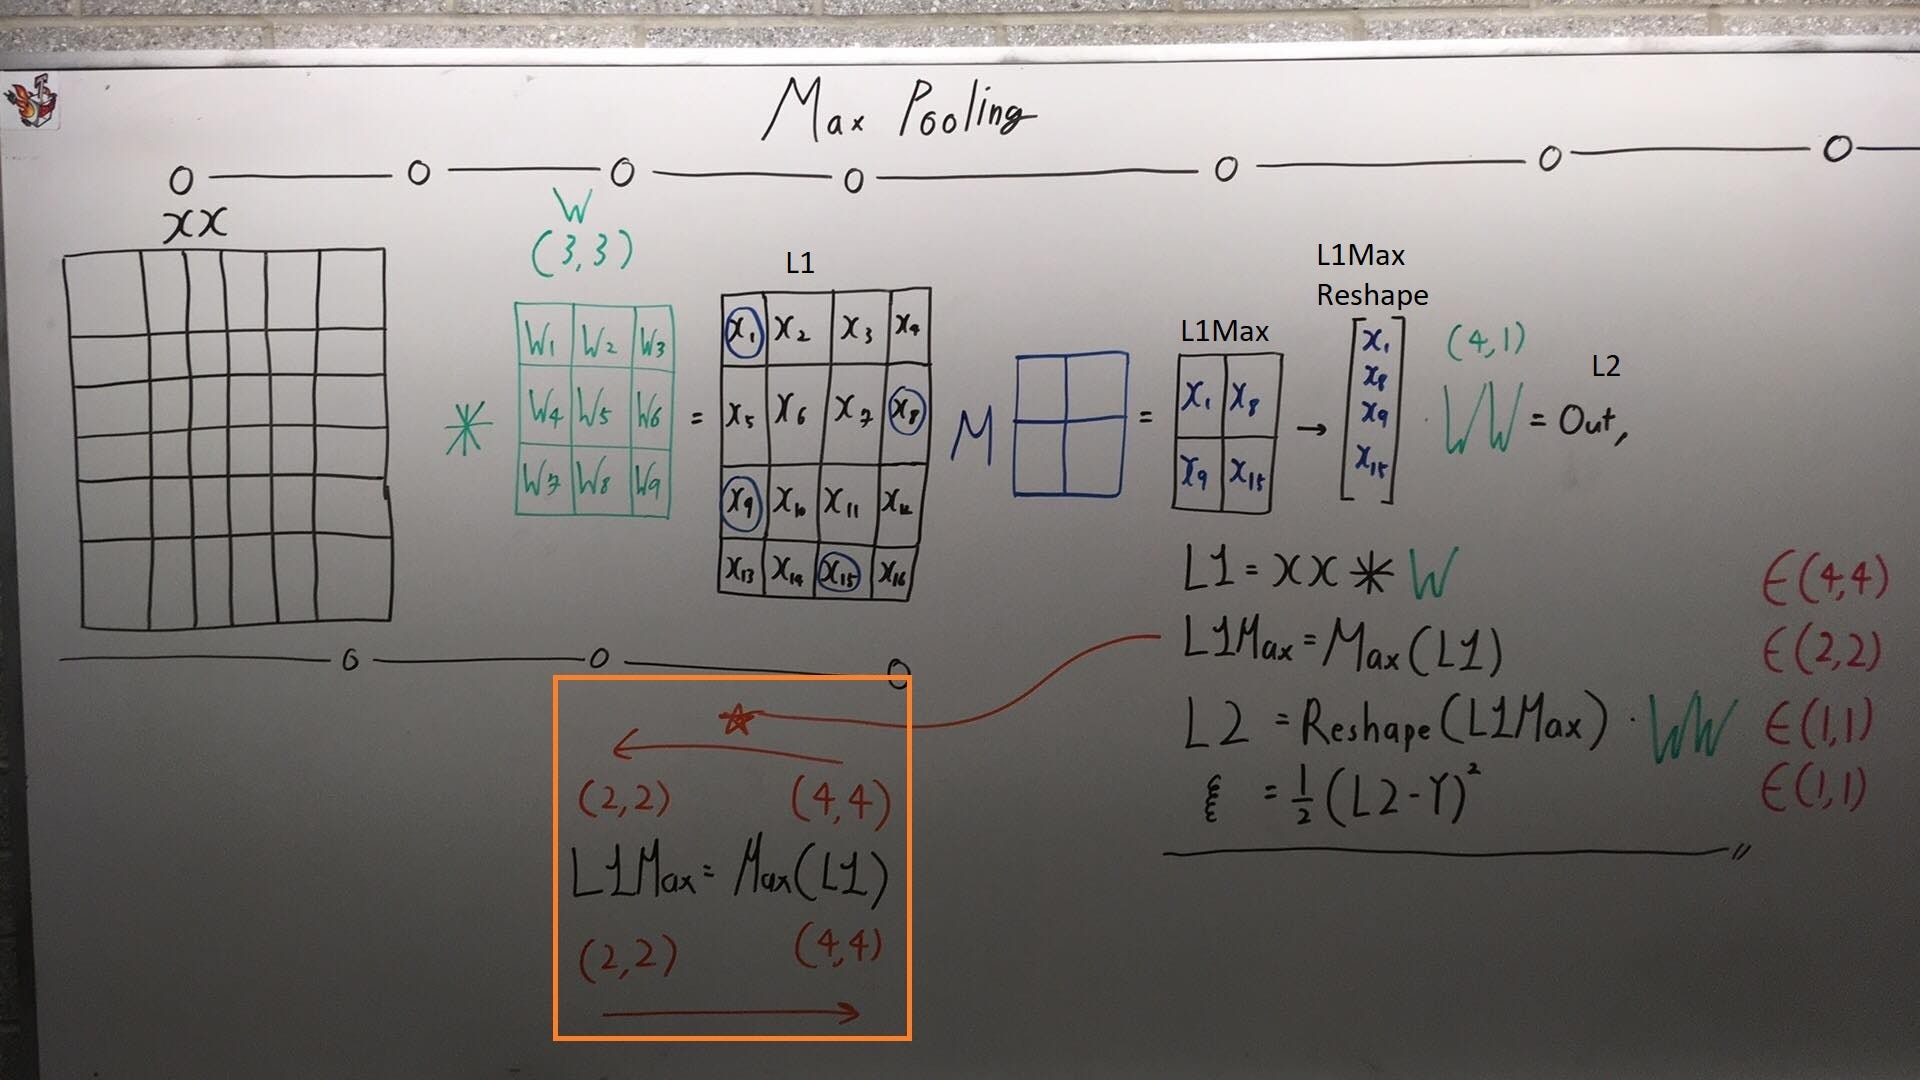 Max Pooling
xx
W
(3,3)
W1 W2 W3
W4 W5 W6
W7 W8 W9
*
=
L1
x1 x2 x3 x4
x5 x6 x7 x8
x9 x10 x11 x12
x13 x14 x15 x16
M
=
L1Max
x1 x8
x9 x15
→
L1Max
Reshape
x1
x8
x9
x15
(4,1)
· WW = Out,
L2
L1 = xx * W ∈(4,4)
L1Max = Max(L1) ∈(2,2)
L2 = Reshape(L1Max) · WW ∈(1,1)
ξ = 1/2 (L2-Y)² ∈(1,1)
(2,2) (4,4)
L1Max = Max(L1)
(2,2) (4,4)